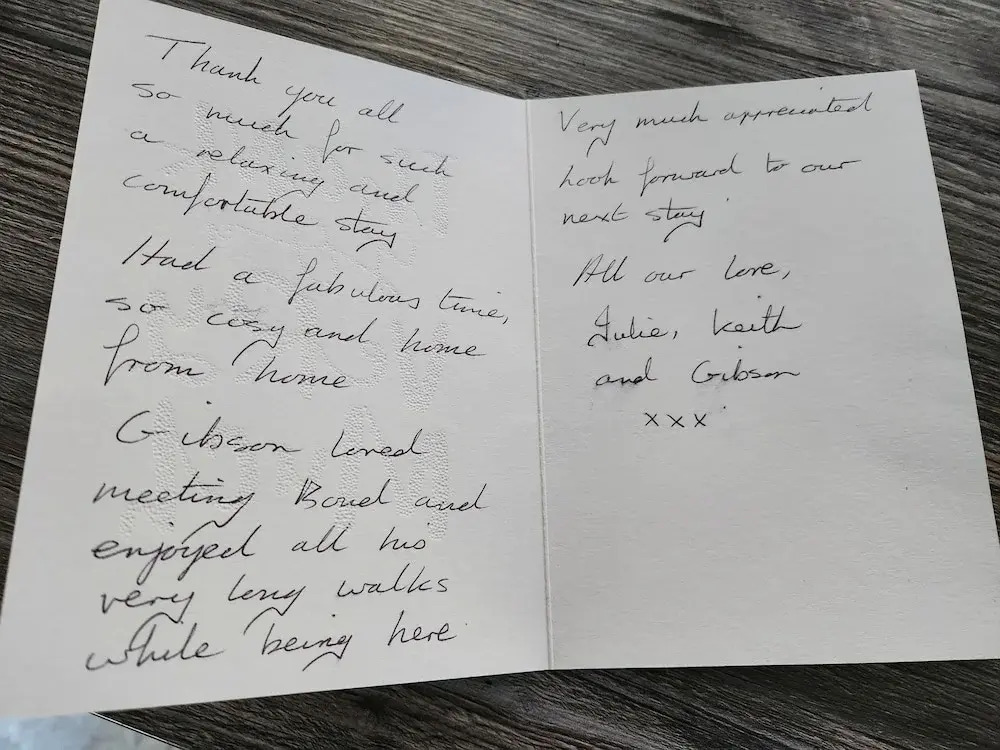 Thank you all
so much for such
a relaxing and
comfortable stay
Had a fabulous time,
so cosy and home
from home
Gibson loved
meeting Bond and
enjoyed all his
very long walks
while being here
Very much appreciated
Look forward to our
next stay
All our love,
Julie, Keith
and Gibson
xxx